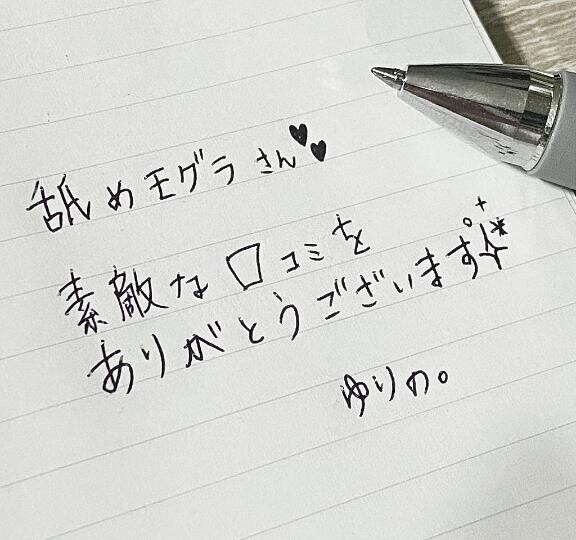 舐めモグラさん♥♥
素敵な口コミを
ありがとうございます
ゆりの。